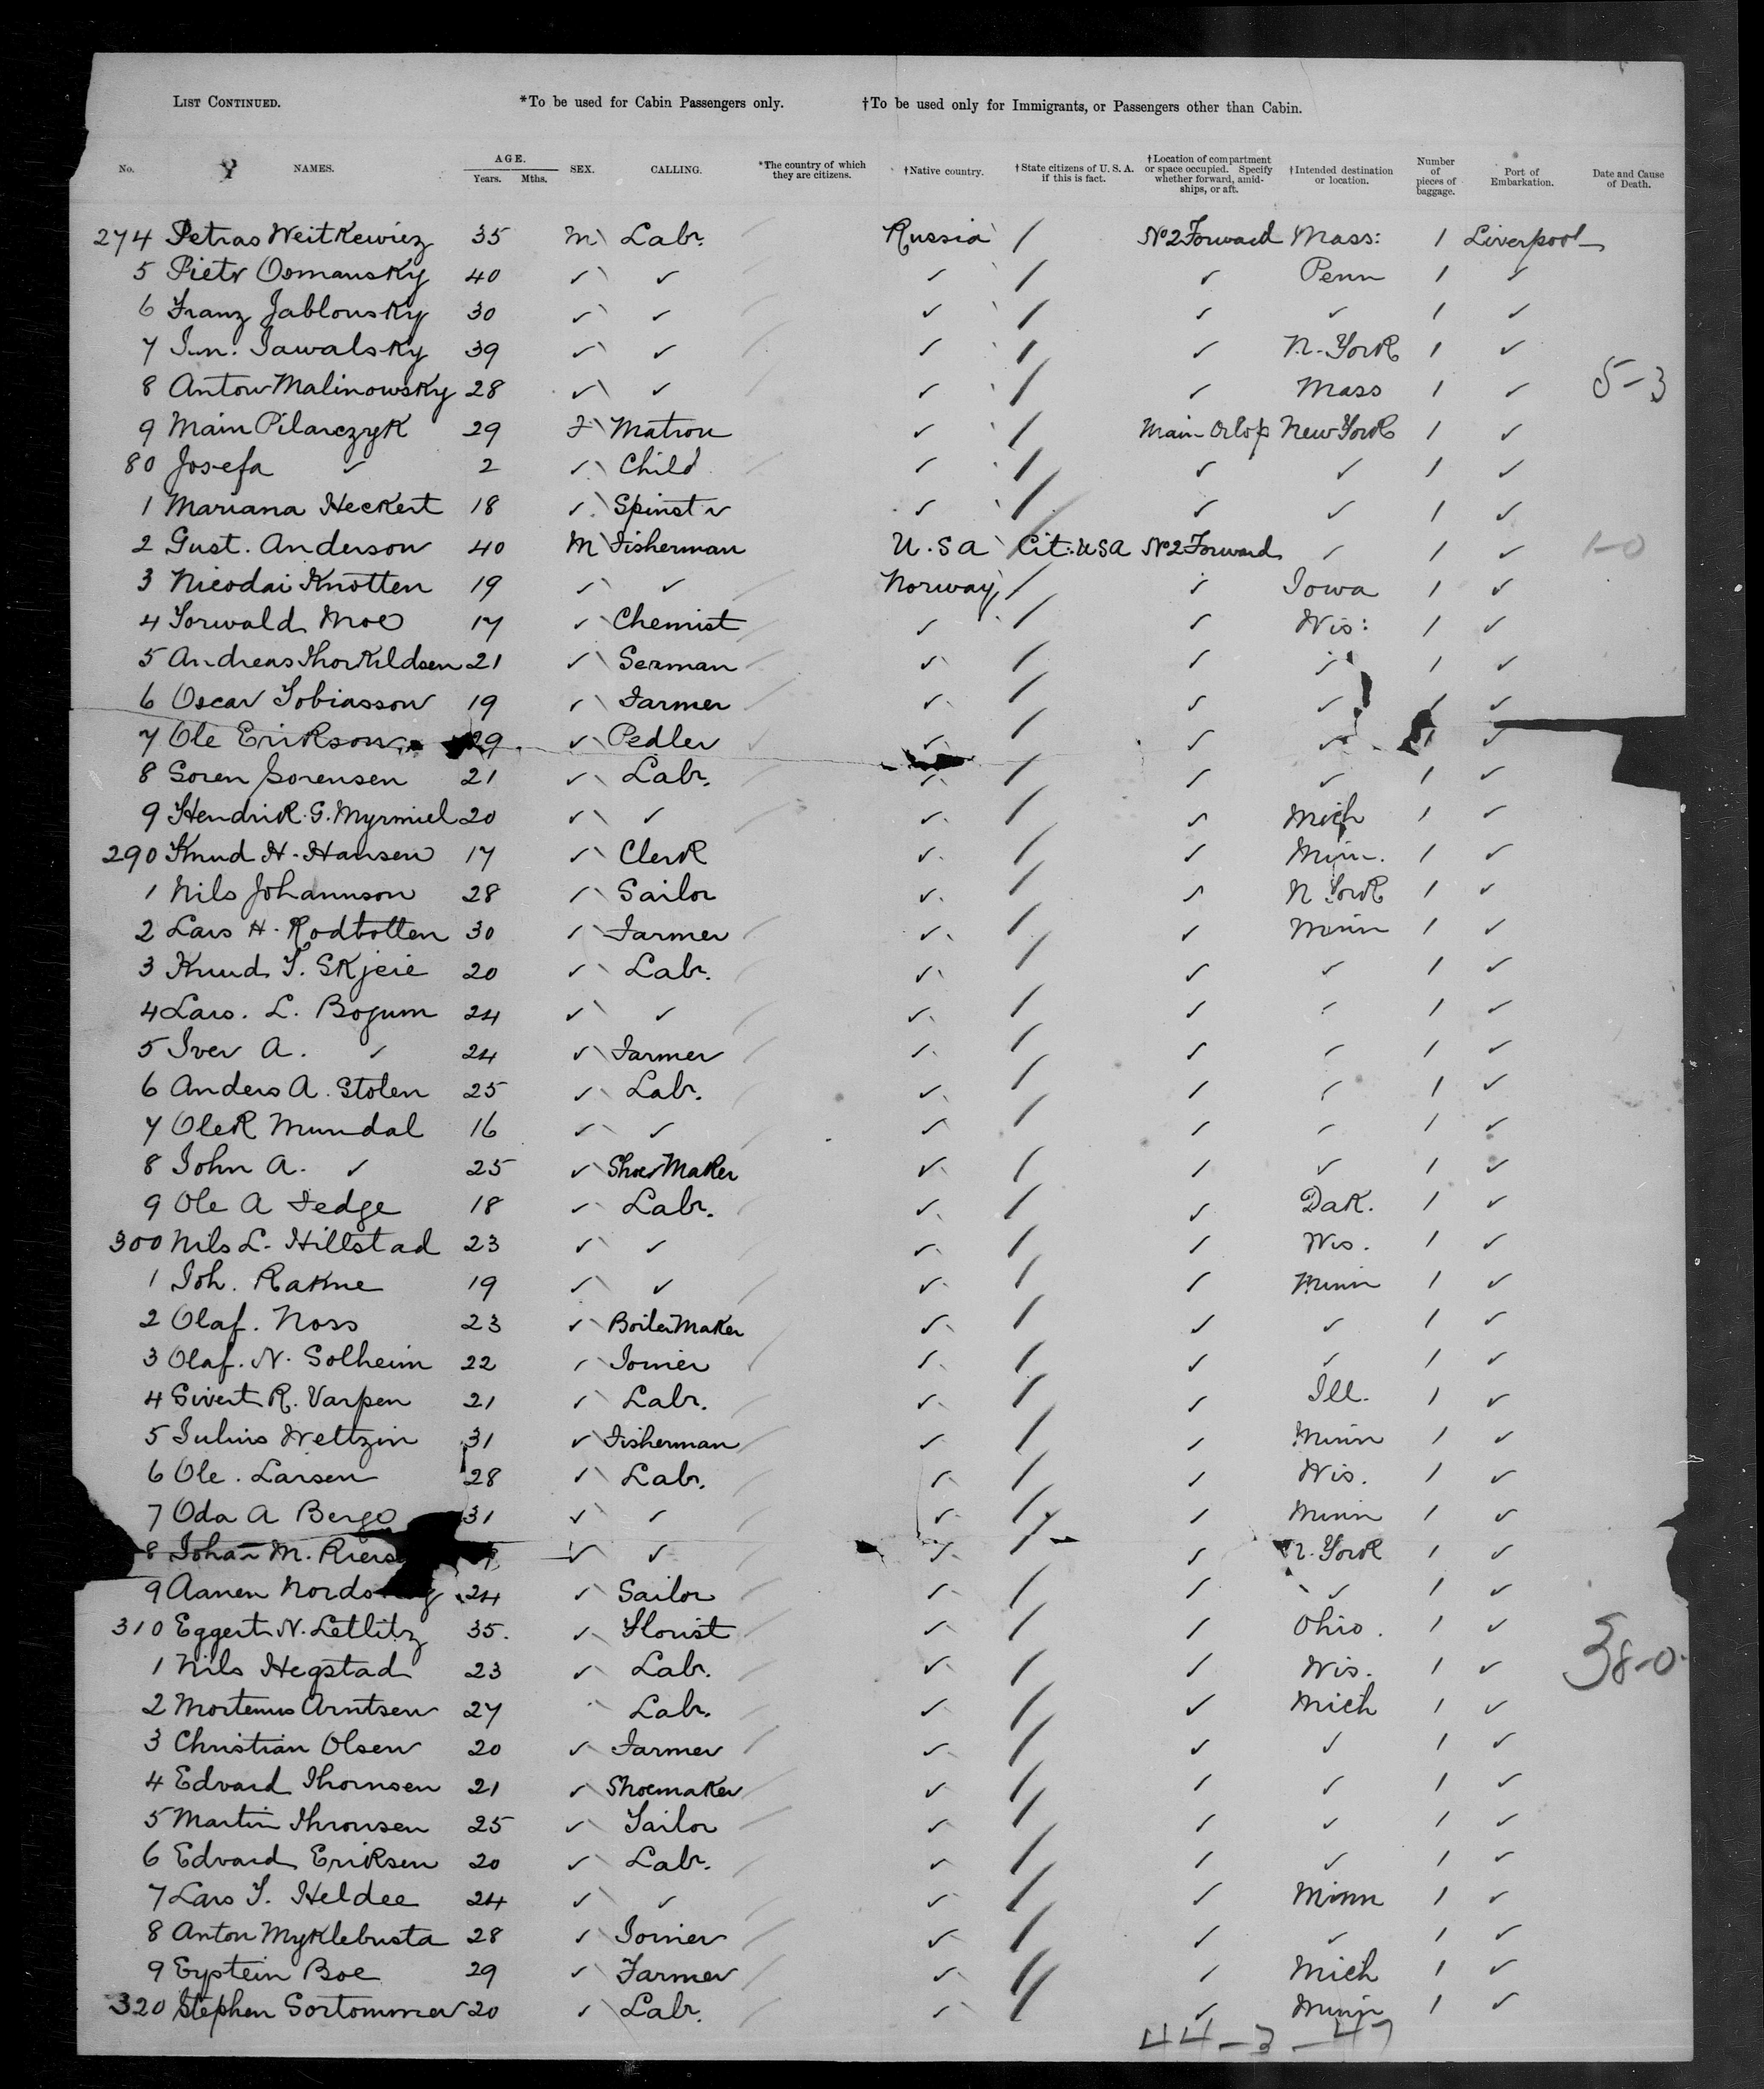 LIST CONTINUED. *To be used for Cabin Passengers only. †To be used only for Immigrants, or Passengers other than Cabin.
No. NAMES. AGE. Years. Mths. SEX. CALLING. *The country of which they are citizens. †Native country. †State citizens of U. S. A. if this is fact. †Location of compartment or space occupied. Specify whether forward, amidships, or aft. †Intended destination or location. Number of pieces of baggage. Port of Embarkation. Date and Cause of Death.
274 Petras Weitkewicz 35 M Labr. Russia / No2 Forward Mass: 1 Liverpool
5 Pietr Osmansky 40 ✓ ✓ ✓ / ✓ Penn 1 ✓
6 Franz Jablonsky 30 ✓ ✓ ✓ / ✓ ✓ 1 ✓
7 Sawalsky 39 ✓ ✓ ✓ / ✓ N. York 1 ✓
8 Anton Malinowsky 28 ✓ ✓ ✓ / ✓ Mass 1 ✓ 5-3
9 Main Pilarczyk 29 F Matron ✓ / Main Orlop New York 1 ✓
80 Josefa ✓ 2 ✓ Child ✓ / ✓ ✓ 1 ✓
1 Mariana Heckert 18 ✓ Spinstr ✓ / ✓ ✓ 1 ✓
2 Gust. Anderson 40 M Fisherman U.S.A / Cit. USA No2 Forward ✓ 1 ✓ 1-0
3 Nicodai Knotten 19 ✓ ✓ Norway / ✓ Iowa 1 ✓
4 Torwald Moe 17 ✓ Chemist ✓ / ✓ Wis: 1 ✓
5 Andreas Thorkildsen 21 ✓ Seaman ✓ / ✓ ✓ 1 ✓
6 Oscar Tobiasson 19 ✓ Farmer ✓ / ✓ ✓ 1 ✓
7 Ole Erikson 29 ✓ Pedler ✓ / ✓ ✓ 1 ✓
8 Soren Sorensen 21 ✓ Labr. ✓ / ✓ ✓ 1 ✓
9 Hendrik G. Myrmiel 20 ✓ ✓ ✓ / ✓ Mich 1 ✓
290 Knud H. Hansen 17 ✓ Clerk ✓ / ✓ Minn. 1 ✓
1 Nils Johannson 28 ✓ Sailor ✓ / ✓ N York 1 ✓
2 Lars H. Rodbotten 30 ✓ Farmer ✓ / ✓ Minn 1 ✓
3 Knud T. Skjeie 20 ✓ Labr. ✓ / ✓ ✓ 1 ✓
4 Lars. L. Bojum 24 ✓ ✓ ✓ / ✓ ✓ 1 ✓
5 Iver A. ✓ 24 ✓ Farmer ✓ / ✓ ✓ 1 ✓
6 Anders A. Stolen 25 ✓ Labr. ✓ / ✓ ✓ 1 ✓
7 Ole R Mundal 16 ✓ ✓ ✓ / ✓ ✓ 1 ✓
8 John A. ✓ 25 ✓ Shoe Maker ✓ / ✓ ✓ 1 ✓
9 Ole A Fedge 18 ✓ Labr. ✓ / ✓ Dak. 1 ✓
300 Nils L. Hillstad 23 ✓ ✓ ✓ / ✓ Wis. 1 ✓
1 Joh. Rakne 19 ✓ ✓ ✓ / ✓ Minn 1 ✓
2 Olaf. Noss 23 ✓ Boiler Maker ✓ / ✓ ✓ 1 ✓
3 Olaf. N. Solheim 22 ✓ Joiner ✓ / ✓ ✓ 1 ✓
4 Sivert R. Varpen 21 ✓ Labr. ✓ / ✓ Ill. 1 ✓
5 Julius Weltzin 31 ✓ Fisherman ✓ / ✓ Minn 1 ✓
6 Ole. Larsen 28 ✓ Labr. ✓ / ✓ Wis. 1 ✓
7 Oda A Bergo 31 ✓ ✓ ✓ / ✓ Minn 1 ✓
8 Johan M. ✓ ✓ ✓ / ✓ N. York 1 ✓
9 Aanen 24 ✓ Sailor ✓ / ✓ ✓ 1 ✓
310 Eggert N. Letlitz 35. ✓ Florist ✓ / ✓ Ohio. 1 ✓ 38-0
1 Nils Hegstad 23 ✓ Labr. ✓ / ✓ Wis. 1 ✓
2 Mortenus Arntsen 27 Labr. ✓ / ✓ Mich 1 ✓
3 Christian Olsen 20 ✓ Farmer ✓ / ✓ ✓ 1 ✓
4 Edvard Thomsen 21 ✓ Shoemaker ✓ / ✓ ✓ 1 ✓
5 Martin Thronsen 25 ✓ Tailor ✓ / ✓ ✓ 1 ✓
6 Edvard Eriksen 20 ✓ Labr. ✓ / ✓ ✓ 1 ✓
7 Lars T. Heldee 24 ✓ ✓ ✓ / ✓ Minn 1 ✓
8 Anton Myklebusta 28 ✓ Joiner ✓ / ✓ ✓ 1 ✓
9 Eystein Boe 29 ✓ Farmer ✓ / ✓ Mich 1 ✓
320 Stephen Sortommer 20 ✓ Labr. ✓ / ✓ Minn 1 ✓
44-3-47